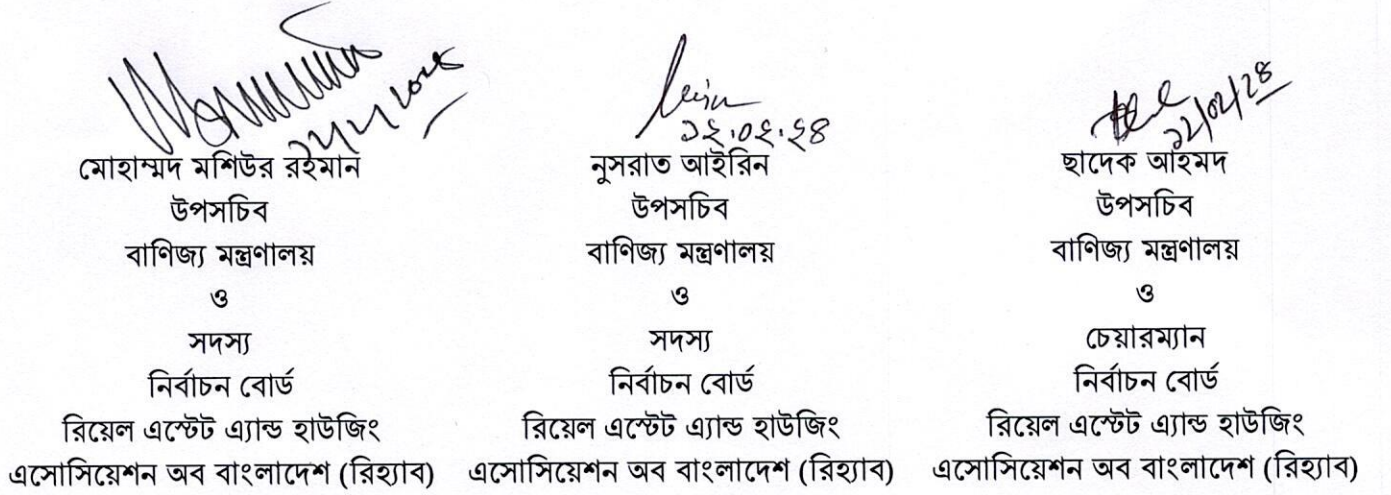 ১২/২/২০২৪
১২.০২.২৪
১২/০২/২৪
মোহাম্মদ মশিউর রহমান
উপসচিব
বাণিজ্য মন্ত্রণালয়
ও
সদস্য
নির্বাচন বোর্ড
রিয়েল এস্টেট এ্যান্ড হাউজিং
এসোসিয়েশন অব বাংলাদেশ (রিহ্যাব)
নুসরাত আইরিন
উপসচিব
বাণিজ্য মন্ত্রণালয়
ও
সদস্য
নির্বাচন বোর্ড
রিয়েল এস্টেট এ্যান্ড হাউজিং
এসোসিয়েশন অব বাংলাদেশ (রিহ্যাব)
ছাদেক আহমদ
উপসচিব
বাণিজ্য মন্ত্রণালয়
ও
চেয়ারম্যান
নির্বাচন বোর্ড
রিয়েল এস্টেট এ্যান্ড হাউজিং
এসোসিয়েশন অব বাংলাদেশ (রিহ্যাব)